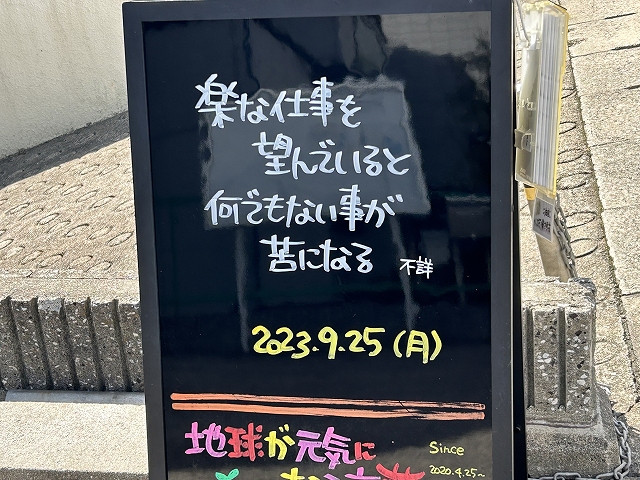 楽な仕事を
望んでいると
何でもない事が
苦になる 不詳
2023.9.25(月)
地球が元気に
Since
2020.4.25~